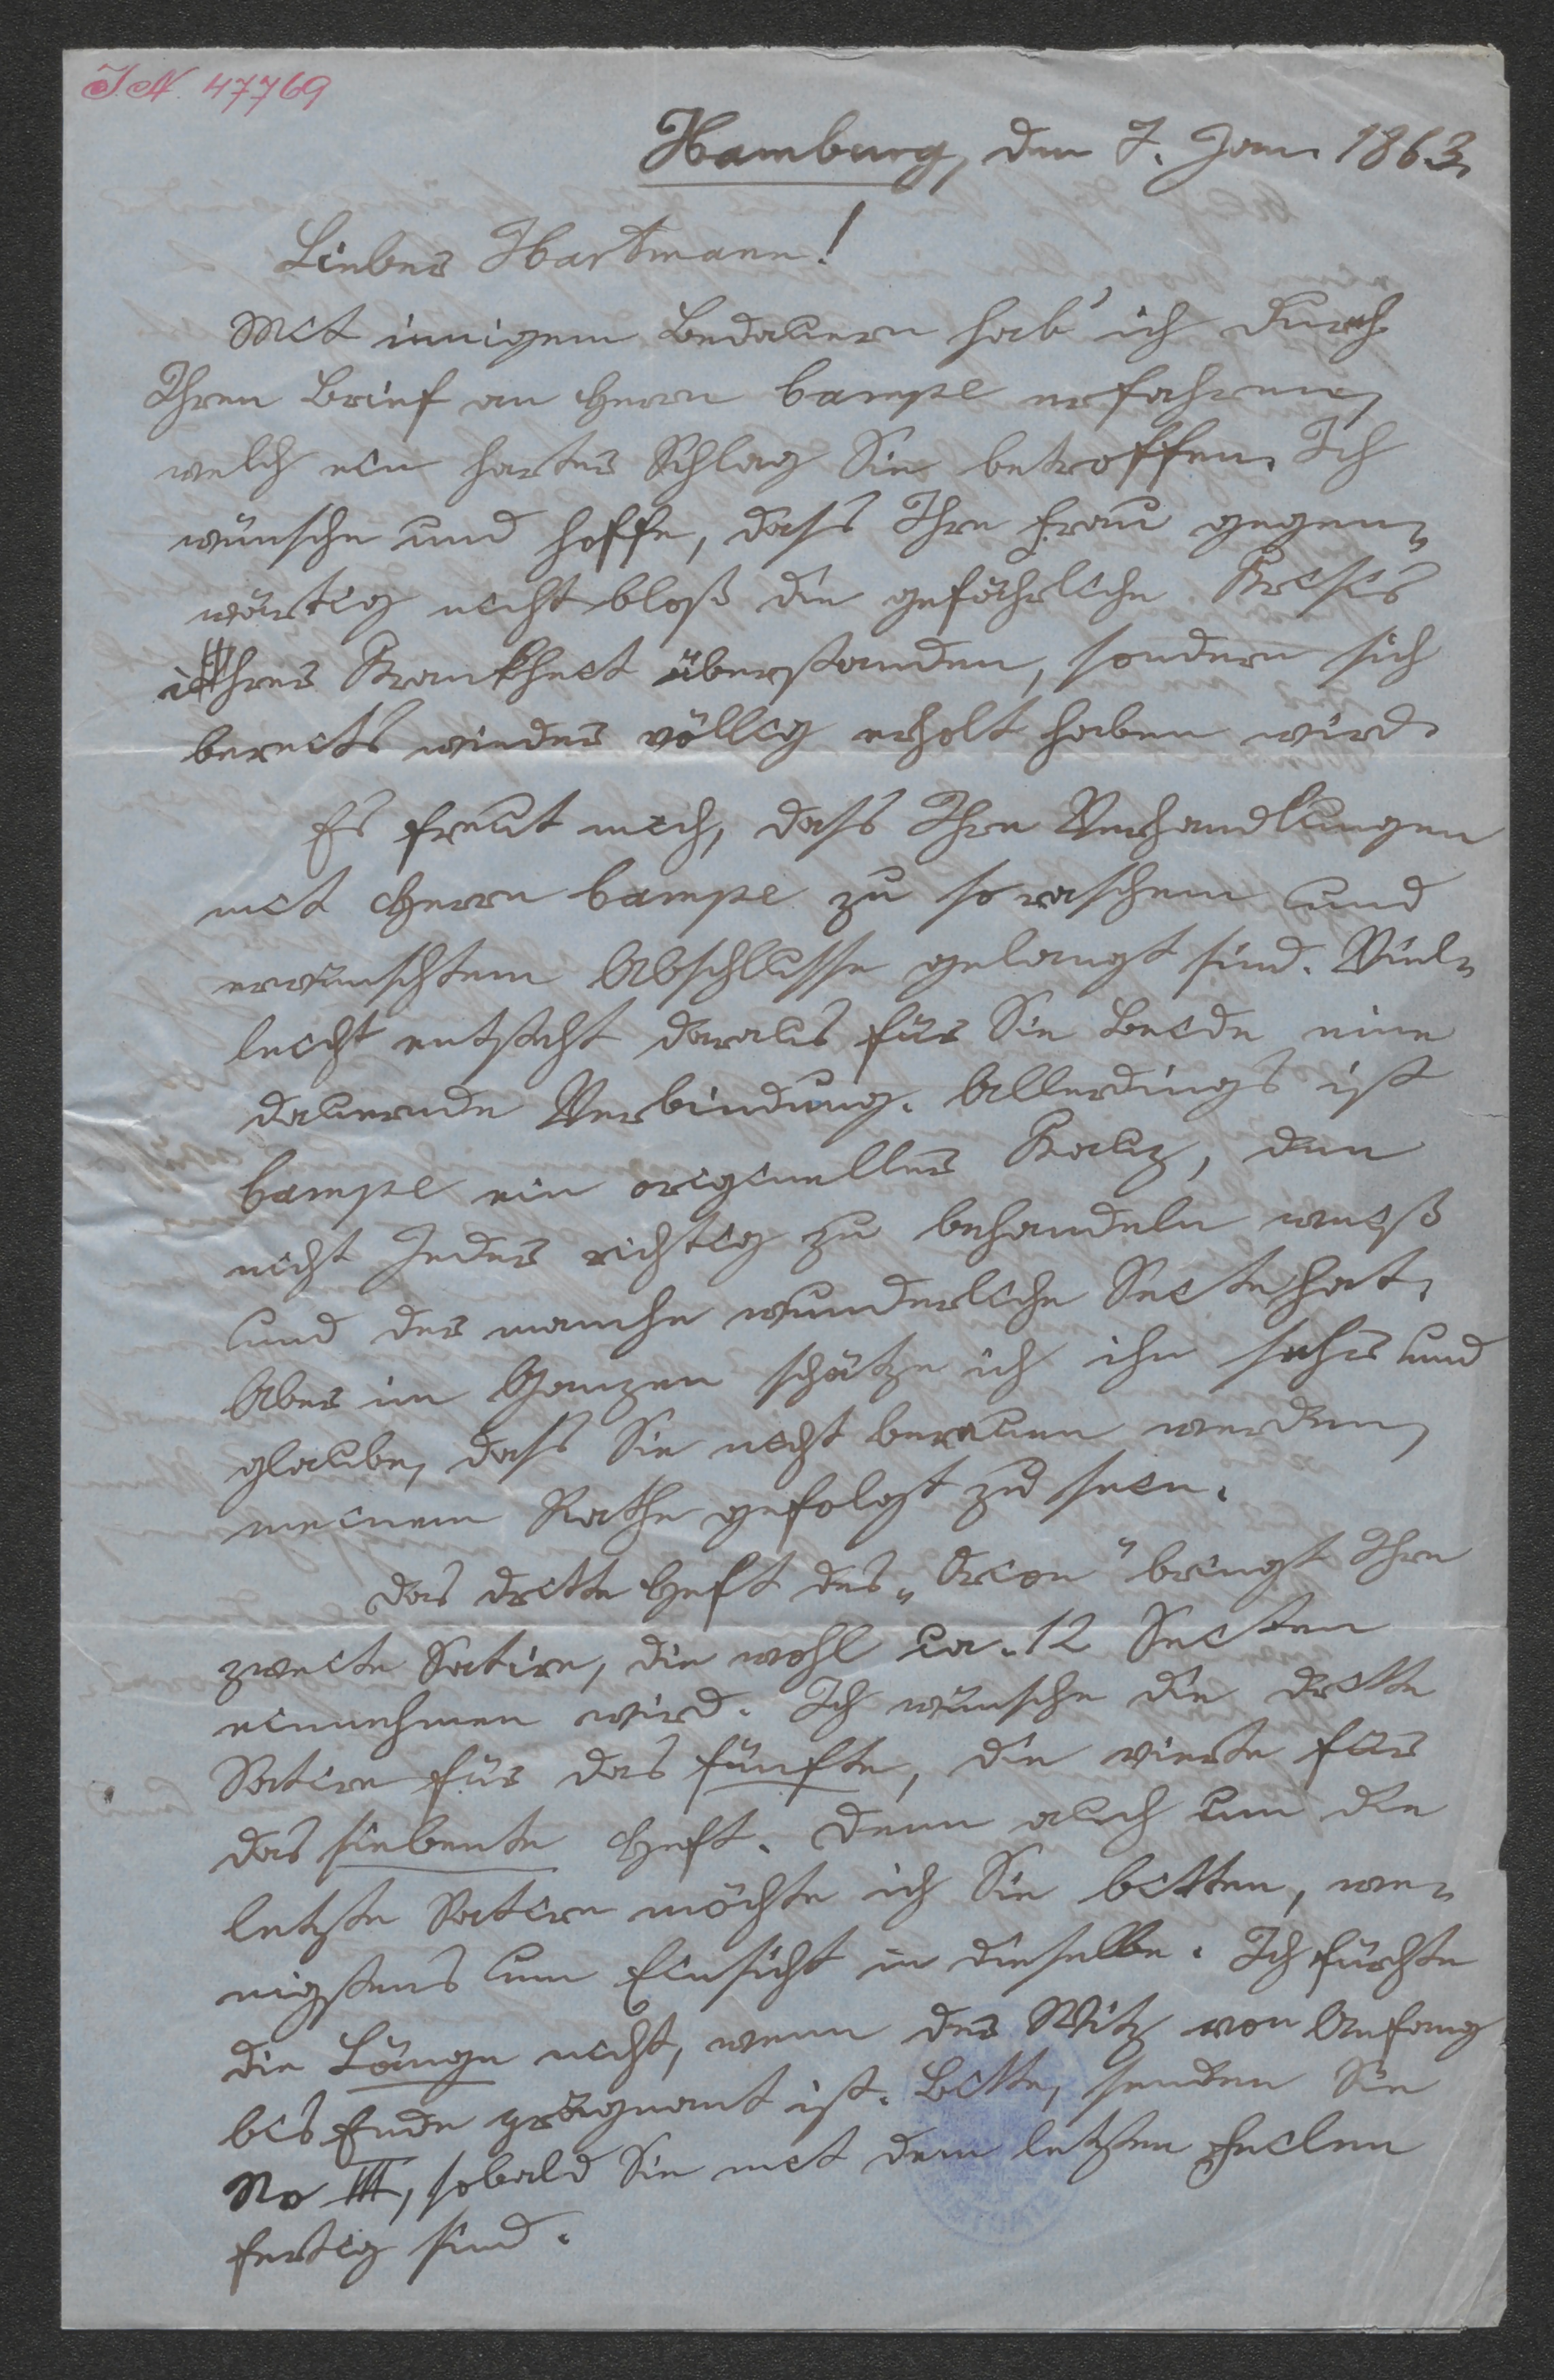 I.N. 47769
Hamburg, den 7. Jan. 1863.
Lieber Hartmann!
Mit innigem Bedauern hab' ich durch
Ihren Brief an Herrn Campe erfahren,
welch ein harter Schlag Sie betroffen. Ich
wünsche und hoffe, dass Ihre Frau gegen-
wärtig nicht bloß die gefährliche Krisis
ihrer Krankheit überstanden, sondern sich
bereits wieder völlig erholt haben wird.
Es freut mich, dass Ihre Verhandlungen
mit Herrn Campe zu so raschem und
erwünschtem Abschlusse gelangt sind. Viel-
leicht entsteht daraus für Sie Beide eine
dauernde Verbindung. Allerdings ist
Campe ein origineller Kauz, den
nicht Jeder richtig zu behandeln weiß
und der manche wunderliche Seite hat.
Aber im Ganzen schätze ich ihn sehr und
glaube, dass Sie nicht bereuen werden,
meinem Rathe gefolgt zu sein.
Das dritte Heft des „Orion" bringt Ihre
zweite Satire, die wohl ca. 12 Seiten
einnehmen wird. Ich wünsche die dritte
Satire für das fünfte, die vierte für
das siebente Heft. Denn auch um die
letzte Satire möchte ich Sie bitten, we-
nigstens um Einsicht in dieselbe. Ich fürchte
die Länge nicht, wenn der Witz von Anfang
bis Ende prägnant ist. Bitte, senden Sie
No III, sobald Sie mit dem letzten Feilen
fertig sind.